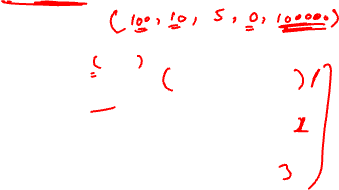 (100, 10, 5, 0, 100000)
( ) ( ) 1
2
3